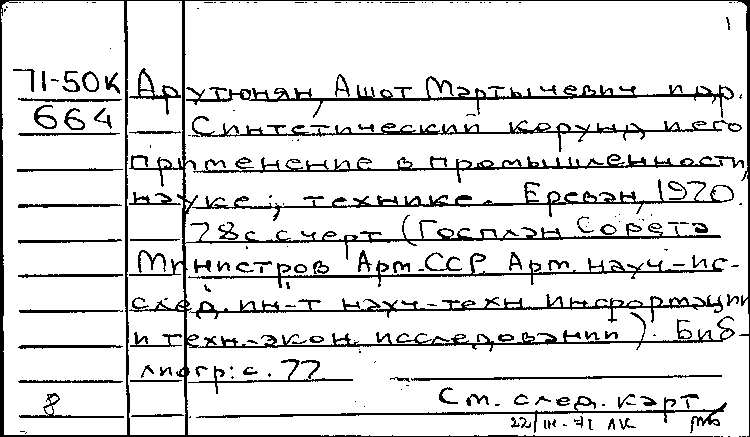 1
71-50к Арутюнян, Ашот Мартычевич и др.
664 Синтетический корунд и его
применение в промышленности,
науке, технике. Ереван, 1970.
78 с. с черт (Госплан Совета
Министров Арм.ССР. Арм. науч-ис-
след. ин-т науч-техн информации
и техн-экон. исследований). Биб-
лиогр: с. 77
См. след. карт
8 22/III-71 ЛК